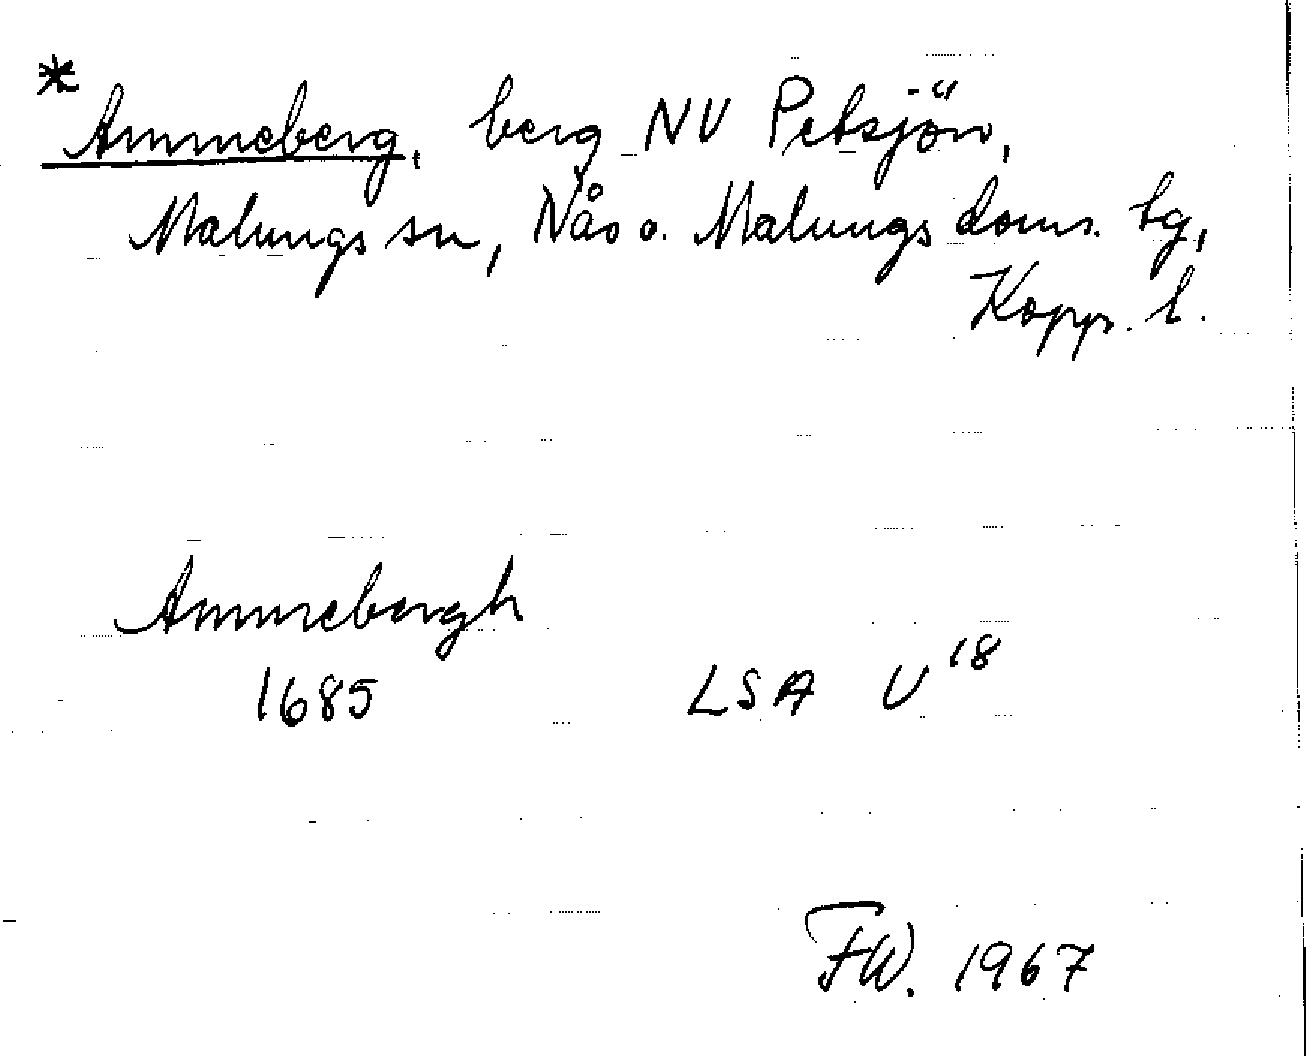 * Ammeberg, berg NV Petsjön,
Malungs sn, Nås o. Malungs doms. bg,
Kopp. l.
Ammebergh
1685 LSA U 18
FW. 1967